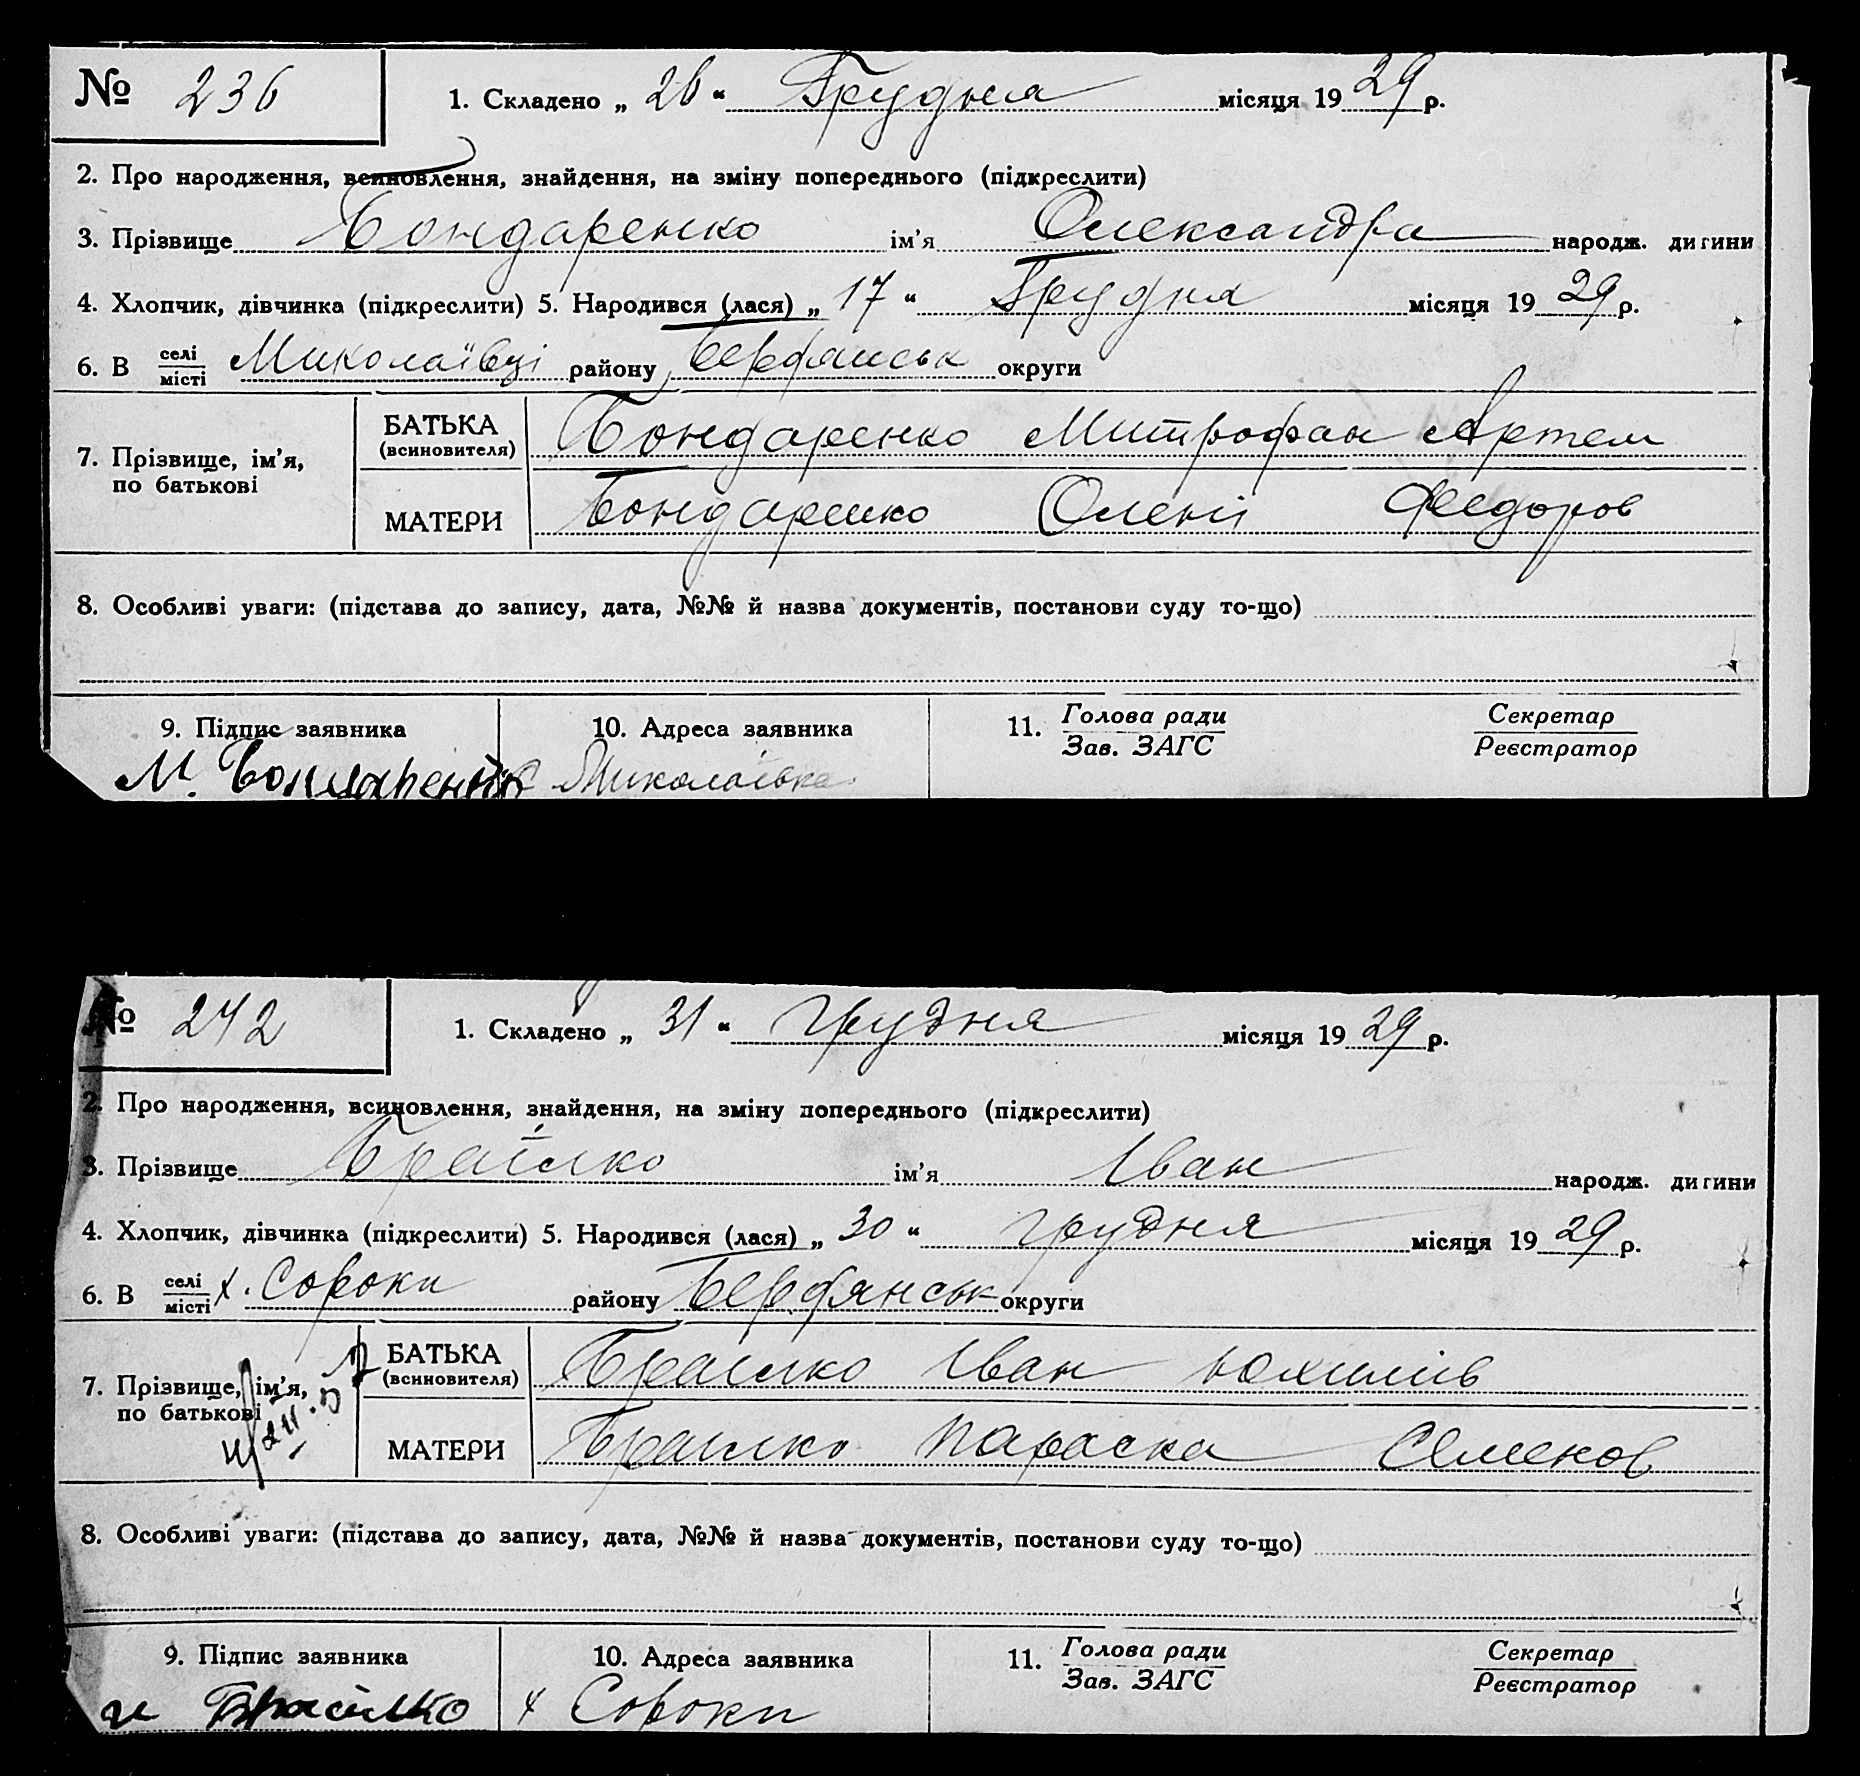 № 236
1. Складено „ 26 “ Грудня місяця 1929 р.
2. Про народження, всиновлення, знайдення, на зміну попереднього (підкреслити)
3. Прізвище Бондаренко ім’я Олександра народж. дитини
4. Хлопчик, дівчинка (підкреслити) 5. Народився (лася) „ 17 “ Грудня місяця 1929 р.
6. В селі/місті Миколаївці району Бердянськ округи
7. Прізвище, ім’я, по батькові
БАТЬКА (всиновителя) Бондаренко Митрофан Артем
МАТЕРИ Бондаренко Олені Федоров
8. Особливі уваги: (підстава до запису, дата, №№ й назва документів, постанови суду то-що)
9. Підпис заявника
М. Бондаренко
10. Адреса заявника
с Миколаївка
11. Голова ради / Зав. ЗАГС
Секретар / Реєстратор
№ 242
1. Складено „ 31 “ грудня місяця 1929 р.
2. Про народження, всиновлення, знайдення, на зміну попереднього (підкреслити)
3. Прізвище Браїлко ім’я Іван народж. дитини
4. Хлопчик, дівчинка (підкреслити) 5. Народився (лася) „ 30 “ грудня місяця 1929 р.
6. В селі/місті х. Сороки району Бердянськ округи
7. Прізвище, ім’я, по батькові
БАТЬКА (всиновителя) Браилко Іван Юхимів
МАТЕРИ Браилко Параска Семенов
8. Особливі уваги: (підстава до запису, дата, №№ й назва документів, постанови суду то-що)
9. Підпис заявника
и Браілко
10. Адреса заявника
х Сороки
11. Голова ради / Зав. ЗАГС
Секретар / Реєстратор